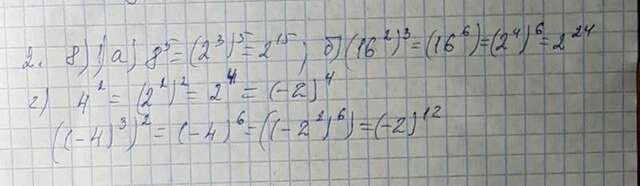 2. 8) 1) а) 8⁵ = (2³)⁵ = 2¹⁵; б) (16²)³ = (16⁶) = (2⁴)⁶ = 2²⁴
г) 4² = (2²)² = 2⁴ = (-2)⁴
((-4)³)² = (-4)⁶ = ((-2²)⁶) = (-2)¹²